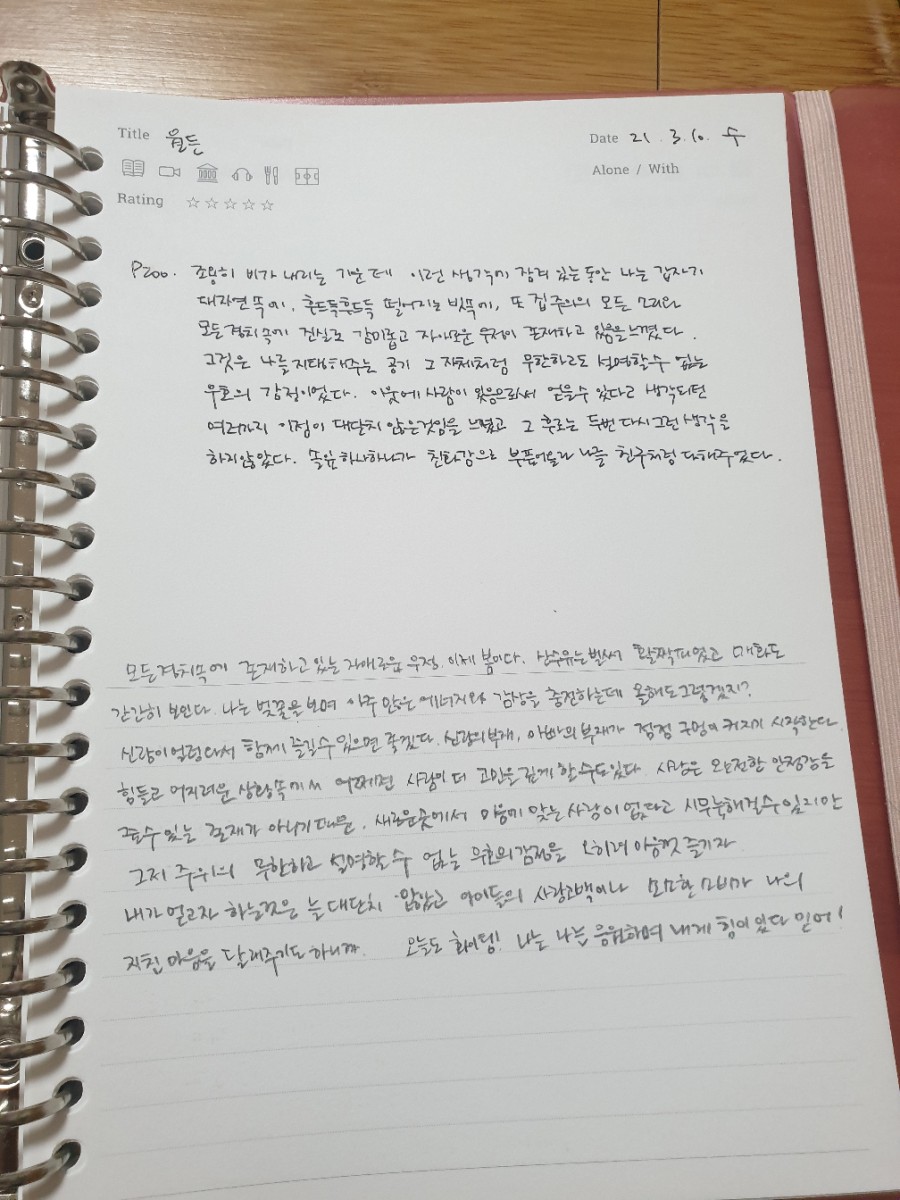 Title 월든
Date 21. 3. 10. 수
Alone / With
Rating ☆☆☆☆☆
P200. 조용히 비가 내리는 가운데 이런 생각에 잠겨 있는 동안 나는 갑자기
대자연 속에, 후드득후드득 떨어지는 빗속에, 또 집 주위의 모든 소리와
모든 경치 속에 진실로 감미롭고 자애로운 우정이 존재하고 있음을 느꼈다.
그것은 나를 지탱해주는 공기 그 자체처럼 무한하고도 설명할 수 없는
우호의 감정이었다. 이웃에 사람이 있음으로써 얻을 수 있다고 생각되던
여러가지 이점이 대단치 않은 것임을 느꼈고 그 후로는 두번 다시 그런 생각을
하지 않았다. 솔잎 하나하나가 친화감으로 부풀어올라 나를 친구처럼 대해주었다.
모든 경치 속에 존재하고 있는 자애로운 우정. 이제 봄이다. 산수유는 벌써 활짝 피었고 매화도
간간히 보인다. 나는 벚꽃을 보며 아주 많은 에너지와 감상을 충전하는데 올해도 그렇겠지?
신랑이 얼렁 와서 함께 즐길 수 있으면 좋겠다. 신랑의 부재, 아빠의 부재가 점점 구멍이 커지기 시작한다.
힘들고 어지러운 상황 속에서 어쩌면 사람이 더 고민을 깊게 할 수도 있다. 사람은 온전한 안정감을
줄 수 있는 존재가 아니기 때문. 새로운 곳에서 마음에 맞는 사람이 없다고 시무룩해질 수 있지만
그저 주위의 무한하고 설명할 수 없는 우호의 감정을 오히려 마음껏 즐기자
내가 얻고자 하는 것은 늘 대단치 않았고 아이들의 사랑고백이나 소소한 소비가 나의
지친 마음을 달래주기도 하니까. 오늘도 화이팅! 나는 나를 응원하며 내게 힘이 있다 믿어!